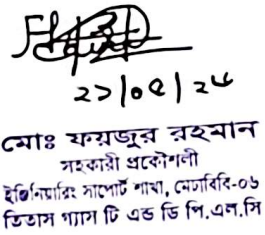 ২১/০৫/২৫
মোঃ ফয়জুর রহমান
সহকারী প্রকৌশলী
ইঞ্জিনিয়ারিং সাপোর্ট শাখা, মেঢাবিবি-০৬
তিতাস গ্যাস টি এন্ড ডি পি.এল.সি